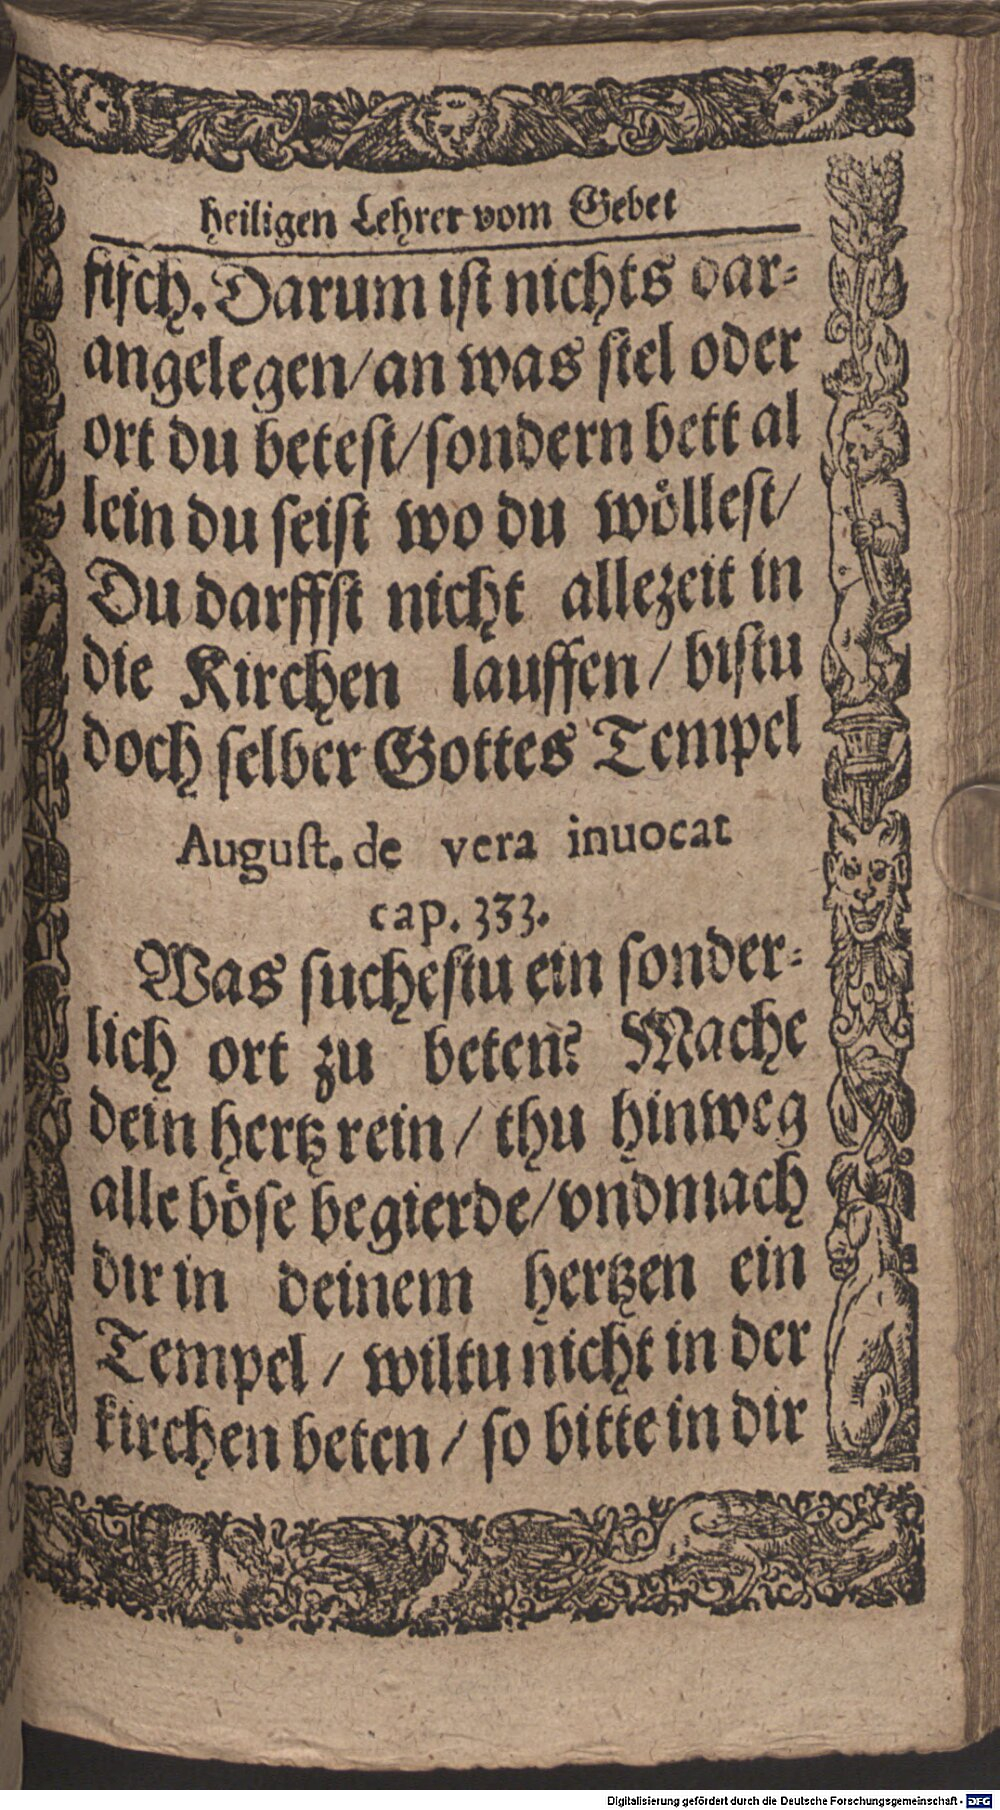 heiligen Lehrer vom Gebet
fisch. Darum ist nichts dar-
angelegen/an was stel oder
ort du betest/sondern bett al
lein du seist wo du wöllest/
Du darffst nicht allezeit in
die Kirchen lauffen/ bistu
doch selber Gottes Tempel
August. de vera inuocat
cap. 333.
Was suchestu ein sonder-
lich ort zu beten? Mache
dein hertz rein/ thu hinweg
alle böse begierde/vnd mach
dir in deinem hertzen ein
Tempel/ wiltu nicht in der
kirchen beten/ so bitte in dir
Digitalisierung gefördert durch die Deutsche Forschungsgemeinschaft - DFG